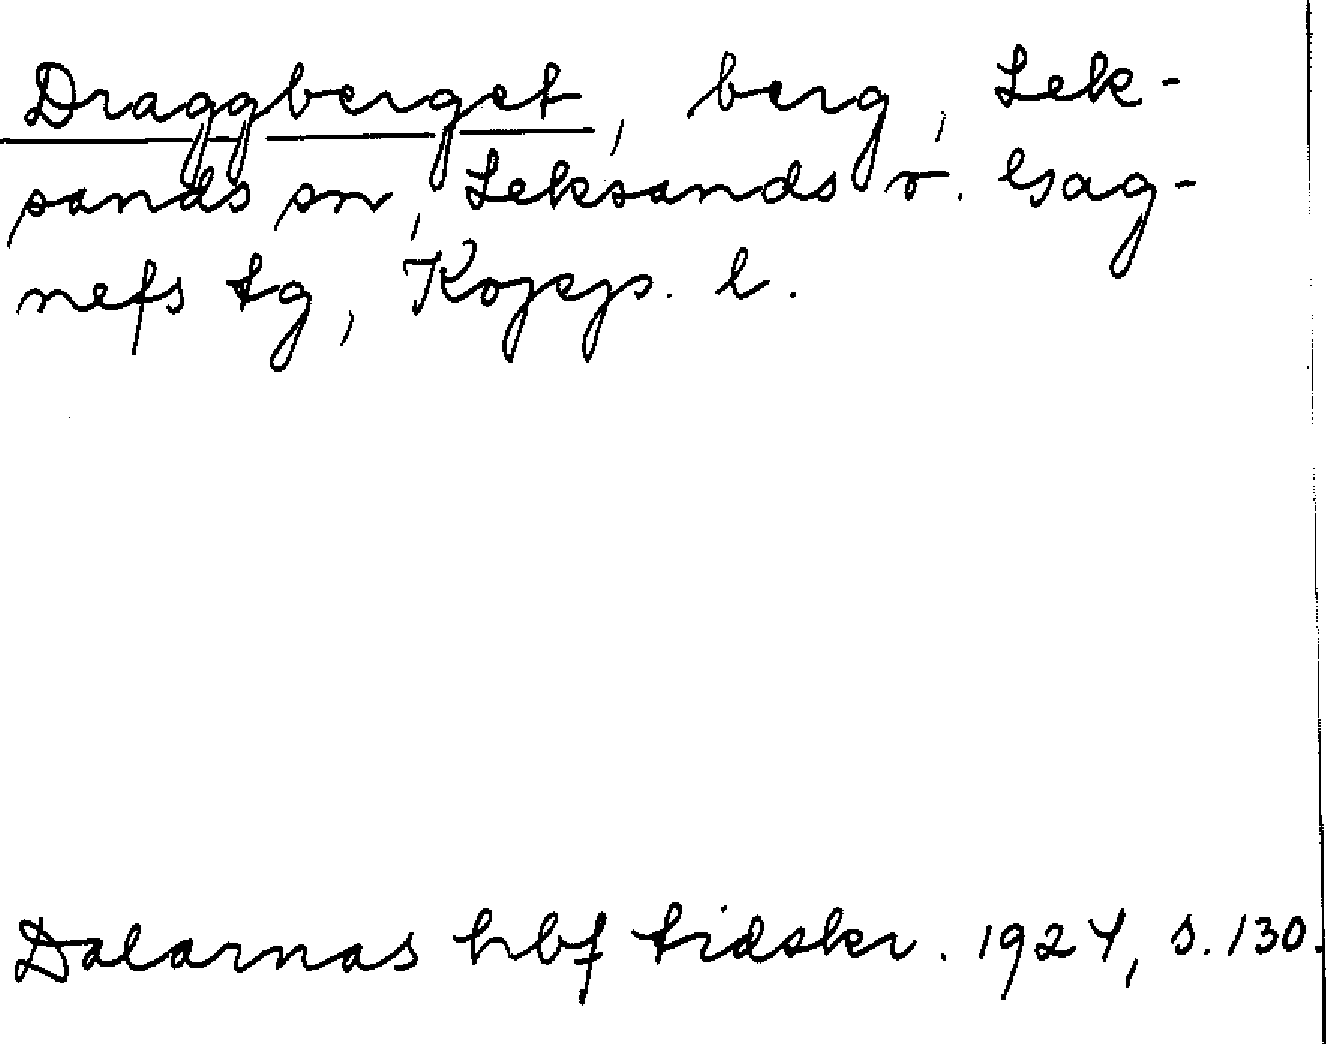 Draggberget, berg, Lek-
sands sn, Leksands o. Gag-
nefs tg, Kopp. l.
Dalarnas hbf tidskr. 1924, s. 130.